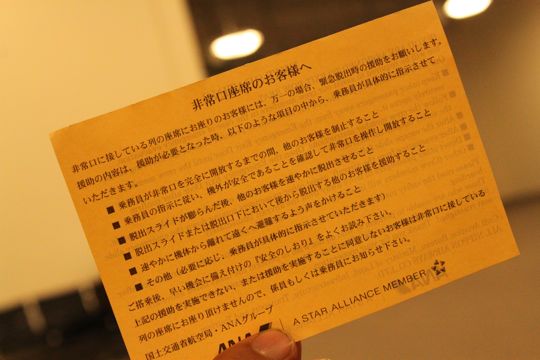 非常口座席のお客様へ
非常口に接している列の座席にお座りのお客様には、万一の場合、緊急脱出時の援助をお願いします。
援助の内容は、援助が必要となった時、以下のような項目の中から、乗務員が具体的に指示させて
いただきます。
■ 乗務員が非常口を完全に開放するまでの間、他のお客様を制止すること
■ 乗務員の指示に従い、機外が安全であることを確認して非常口を操作し開放すること
■ 脱出スライドが膨らんだ後、他のお客様を速やかに脱出させること
■ 脱出スライドまたは脱出口下において後から脱出する他のお客様を援助すること
■ 速やかに機体から離れて遠くへ避難するよう声をかけること
■ その他(必要に応じ、乗務員が具体的に指示させていただきます)
ご搭乗後、早い機会に備え付けの『安全のしおり』をよくお読み下さい。
上記の援助を実施できない、または援助を実施することに同意しないお客様は非常口に接している
列の座席にお座り頂けませんので、係員もしくは乗務員にお知らせ下さい。
国土交通省航空局・ANAグループ
ANA
A STAR ALLIANCE MEMBER